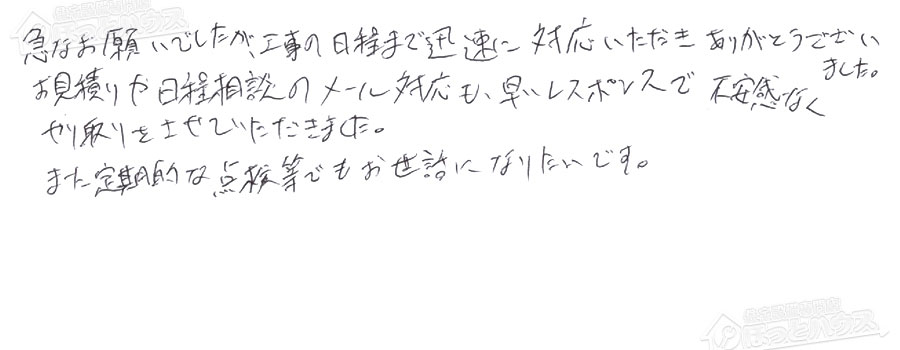 急なお願いでしたが、工事の日程まで迅速に対応いただきありがとうござい
ました。
お見積りや日程相談のメール対応も、早いレスポンスで不安感なく
やり取りをさせていただきました。
また定期的な点検等でもお世話になりたいです。
ほっとハウス